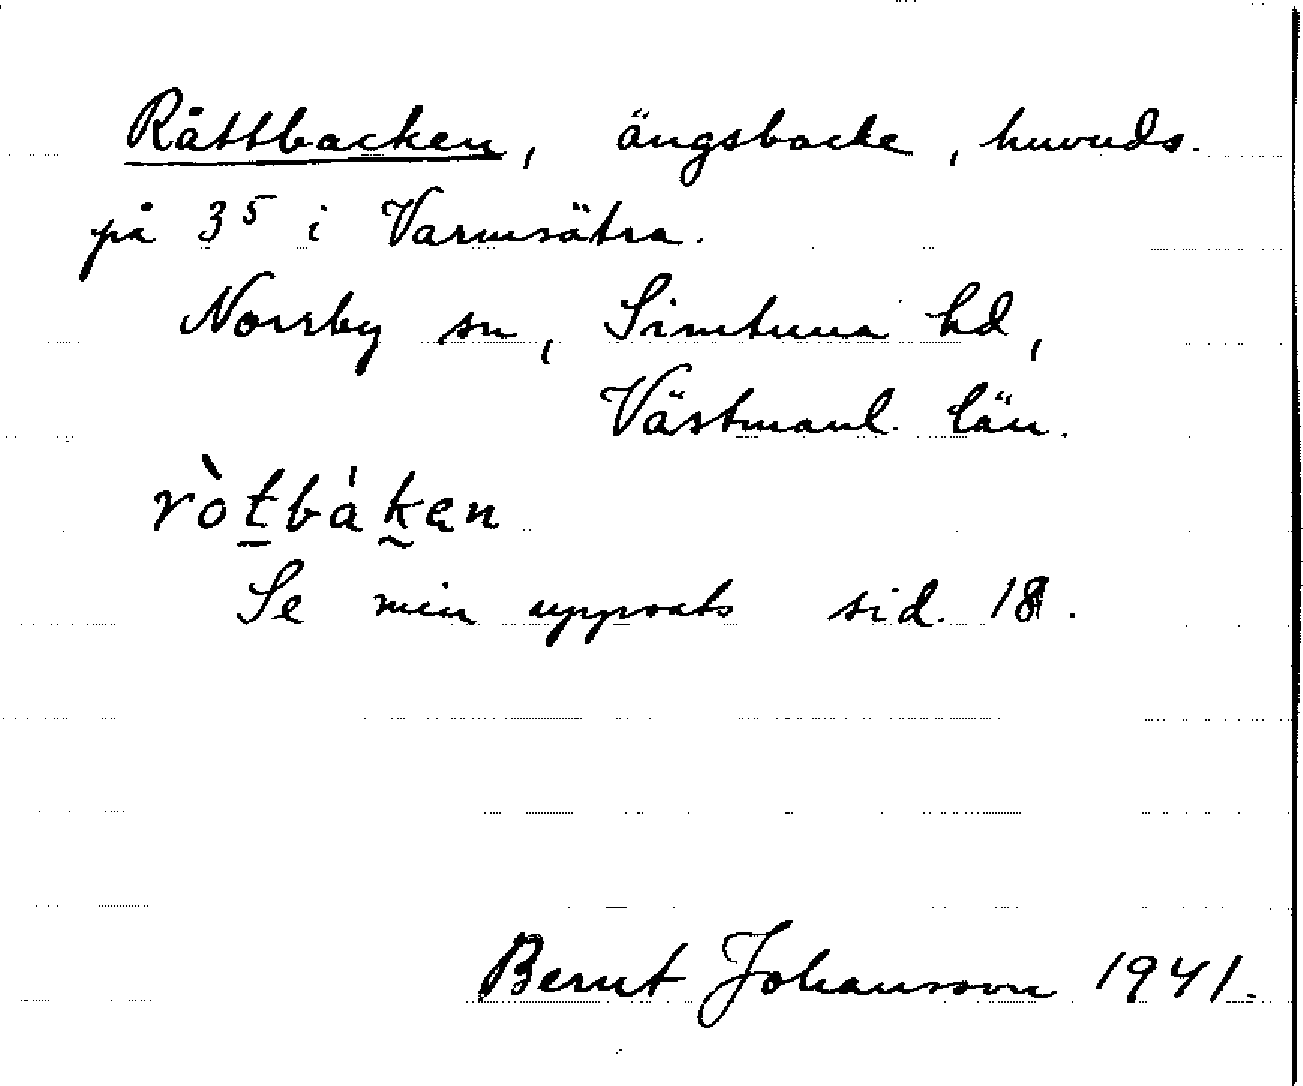 Råttbacken, ängsbacke, huvuds.
på 3⁵ i Varmsätra.
Norrby sn, Simtuna hd,
Västmanl. län.
ròt̲báken
Se min uppsats sid. 18.
Bernt Johansson 1941.